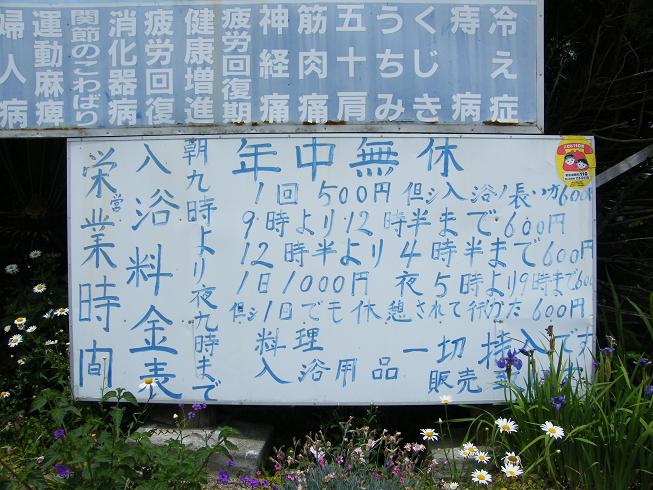 冷え症
痔病
くじき
うちみ
五十肩
筋肉痛
神経痛
疲労回復期
健康増進
疲労回復
消化器病
関節のこわばり
運動麻痺
婦人病
年中無休
1回500円 但シ入浴ノ長い方600
9時より12時半まで600円
12時半より4時半まで600円
1日1000円 夜5時より9時まで600
但シ1日でも休憩されて行かた600円
料理 一切持入です
入浴用品 販売
朝九時より夜九時まで
入浴料金表
栄業時間
営